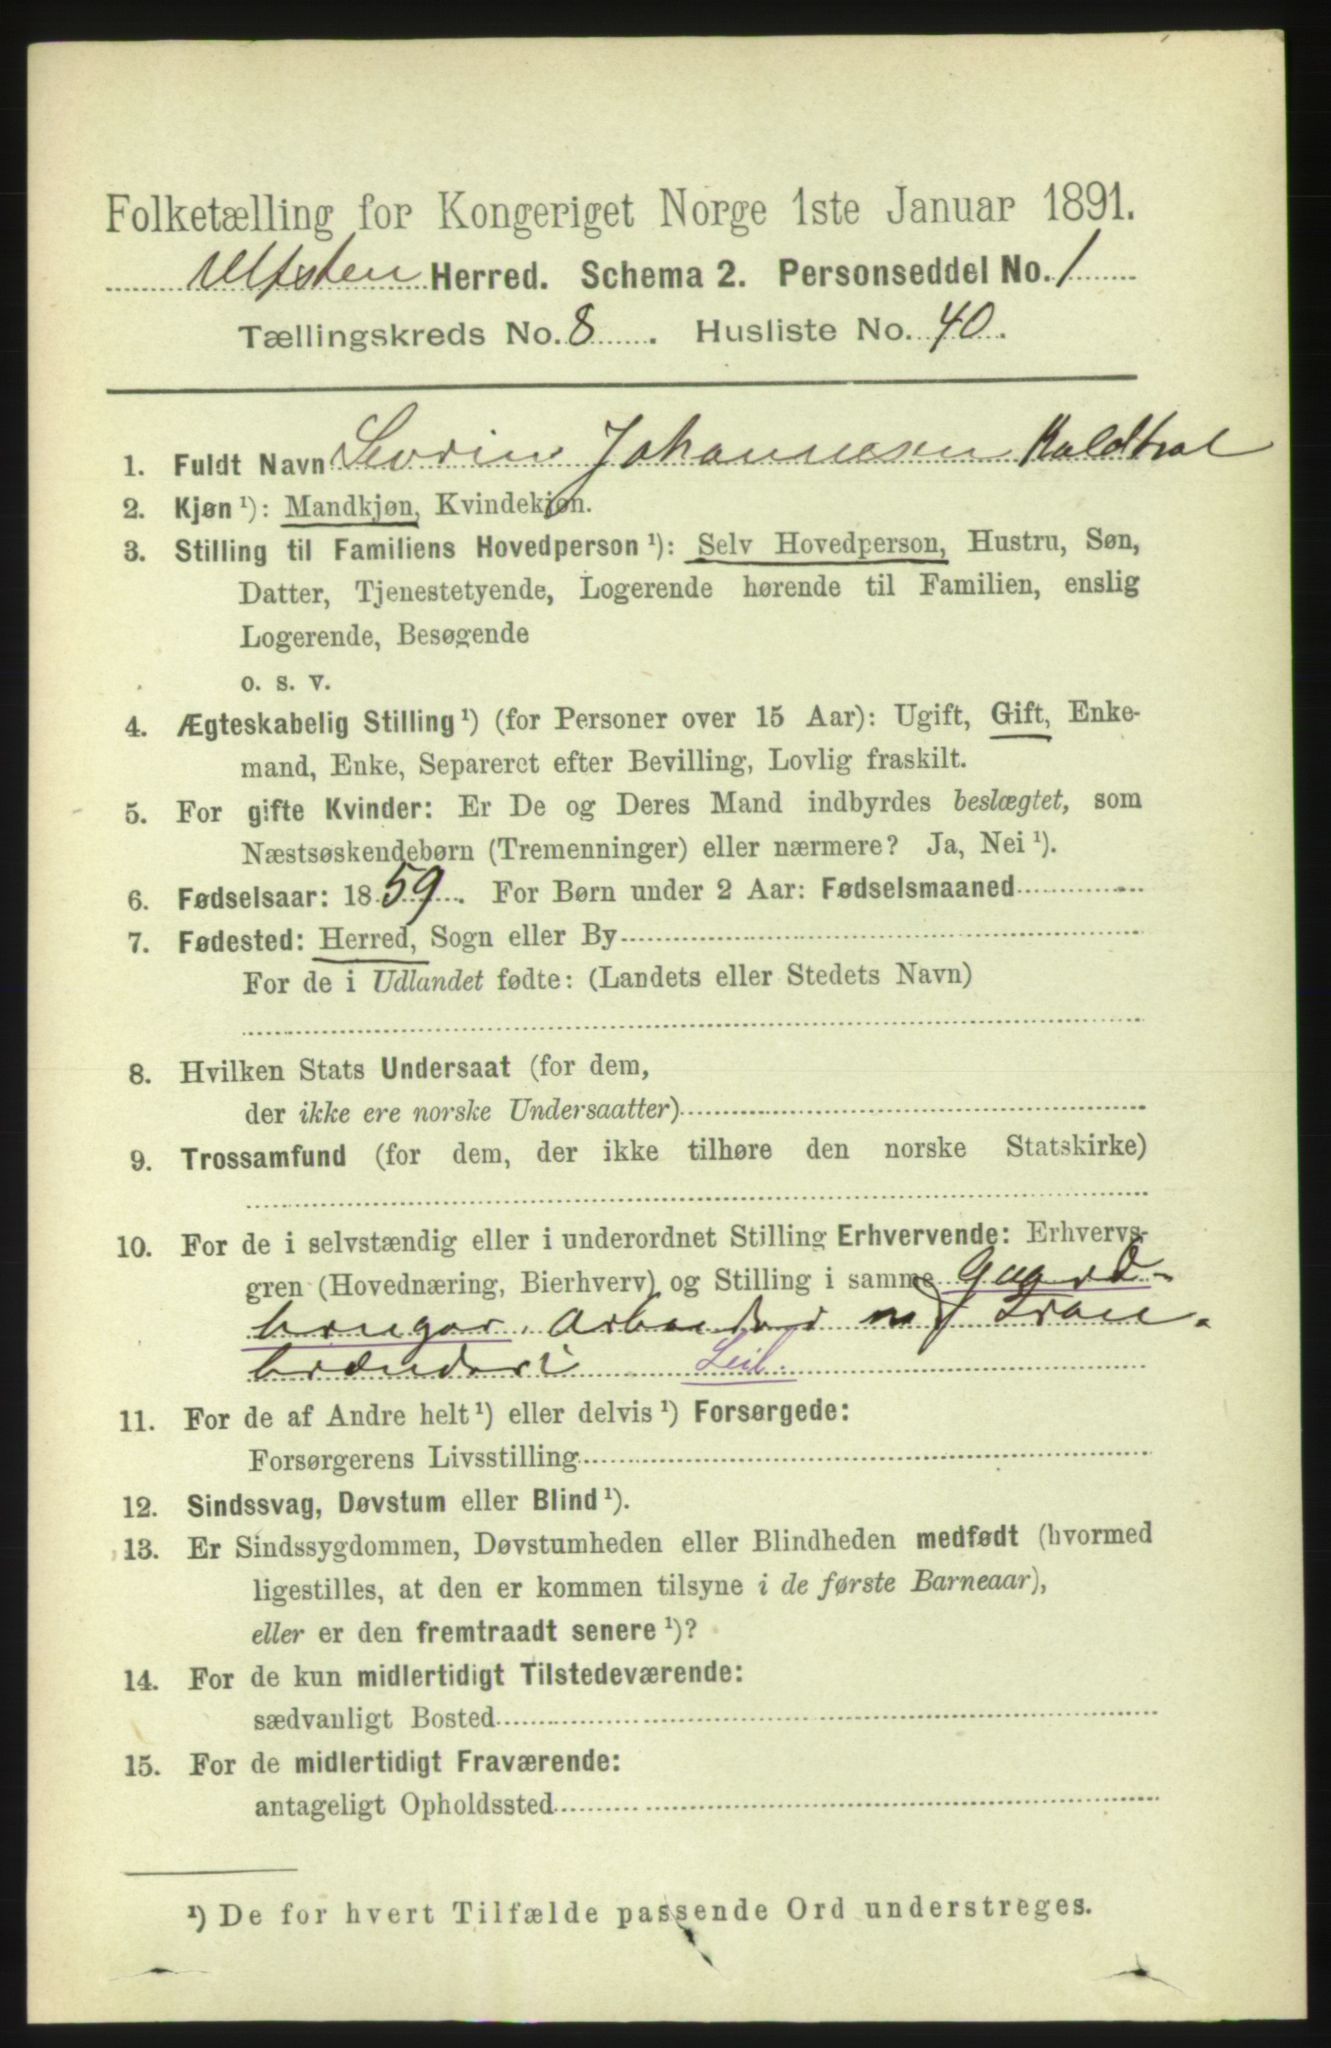 Folketælling for Kongeriget Norge 1ste Januar 1891.
Ulfsten Herred. Schema 2. Personseddel No. 1
Tællingskreds No. 8. Husliste No. 40.
1. Fuldt Navn Sevrin Johannesen Kaldhol
2. Kjøn ¹): Mandkjøn, Kvindekjøn.
3. Stilling til Familiens Hovedperson ¹): Selv Hovedperson, Hustru, Søn,
Datter, Tjenestetyende, Logerende hørende til Familien, enslig
Logerende, Besøgende
o. s. v.
4. Ægteskabelig Stilling ¹) (for Personer over 15 Aar): Ugift, Gift, Enke-
mand, Enke, Separeret efter Bevilling, Lovlig fraskilt.
5. For gifte Kvinder: Er De og Deres Mand indbyrdes beslægtet, som
Næstsøskendebørn (Tremenninger) eller nærmere? Ja, Nei ¹).
6. Fødselsaar: 1859. For Børn under 2 Aar: Fødselsmaaned
7. Fødested: Herred, Sogn eller By
For de i Udlandet fødte: (Landets eller Stedets Navn)
8. Hvilken Stats Undersaat (for dem,
der ikke ere norske Undersaatter)
9. Trossamfund (for dem, der ikke tilhøre den norske Statskirke)
10. For de i selvstændig eller i underordnet Stilling Erhvervende: Erhvervs-
gren (Hovednæring, Bierhverv) og Stilling i samme Gaard-
bruger. Arbeider ved Tran-
brænderi Leil.
11. For de af Andre helt ¹) eller delvis ¹) Forsørgede:
Forsørgerens Livsstilling
12. Sindssvag, Døvstum eller Blind ¹).
13. Er Sindssygdommen, Døvstumheden eller Blindheden medfødt (hvormed
ligestilles, at den er kommen tilsyne i de første Barneaar),
eller er den fremtraadt senere ¹)?
14. For de kun midlertidigt Tilstedeværende:
sædvanligt Bosted
15. For de midlertidigt Fraværende:
antageligt Opholdssted
¹) De for hvert Tilfælde passende Ord understreges.